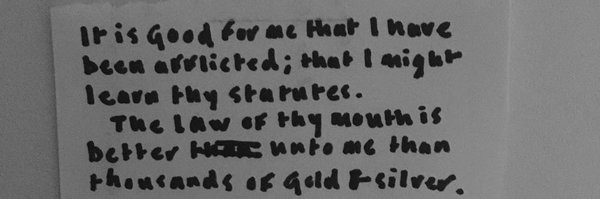 It is Good for me that I have
been afflicted; that I might
learn thy statutes.
The law of thy mouth is
better unto me than
thousands of Gold & silver.